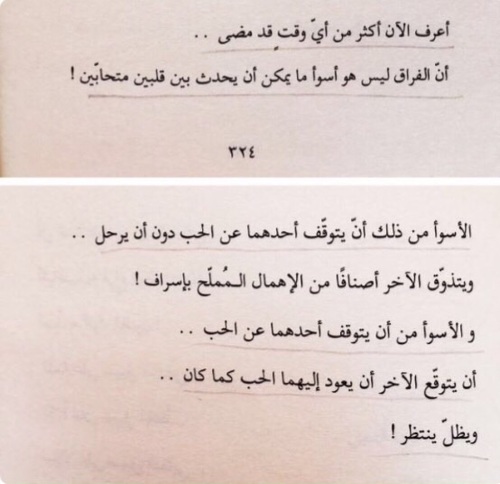 أعرف الآن أكثر من أيّ وقتٍ قد مضى ..
أنّ الفراق ليس هو أسوأ ما يمكن أن يحدث بين قلبين متحابّين !
٣٢٤
الأسوأ من ذلك أنّ يتوقّف أحدهما عن الحب دون أن يرحل ..
ويتذوّق الآخر أصنافًا من الإهمال المُملّح بإسراف !
و الأسوأ من أن يتوقف أحدهما عن الحب ..
أن يتوقّع الآخر أن يعود إليهما الحب كما كان ..
ويظلّ ينتظر !